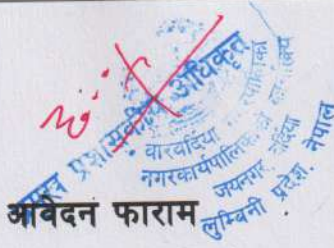 प्रशासकीय अधिकृत
बारबर्दिया नगरपालिका
नगरकार्यपालिकाको कार्यालय
जयनगर, बर्दिया
लुम्बिनी प्रदेश, नेपाल
आवेदन फाराम